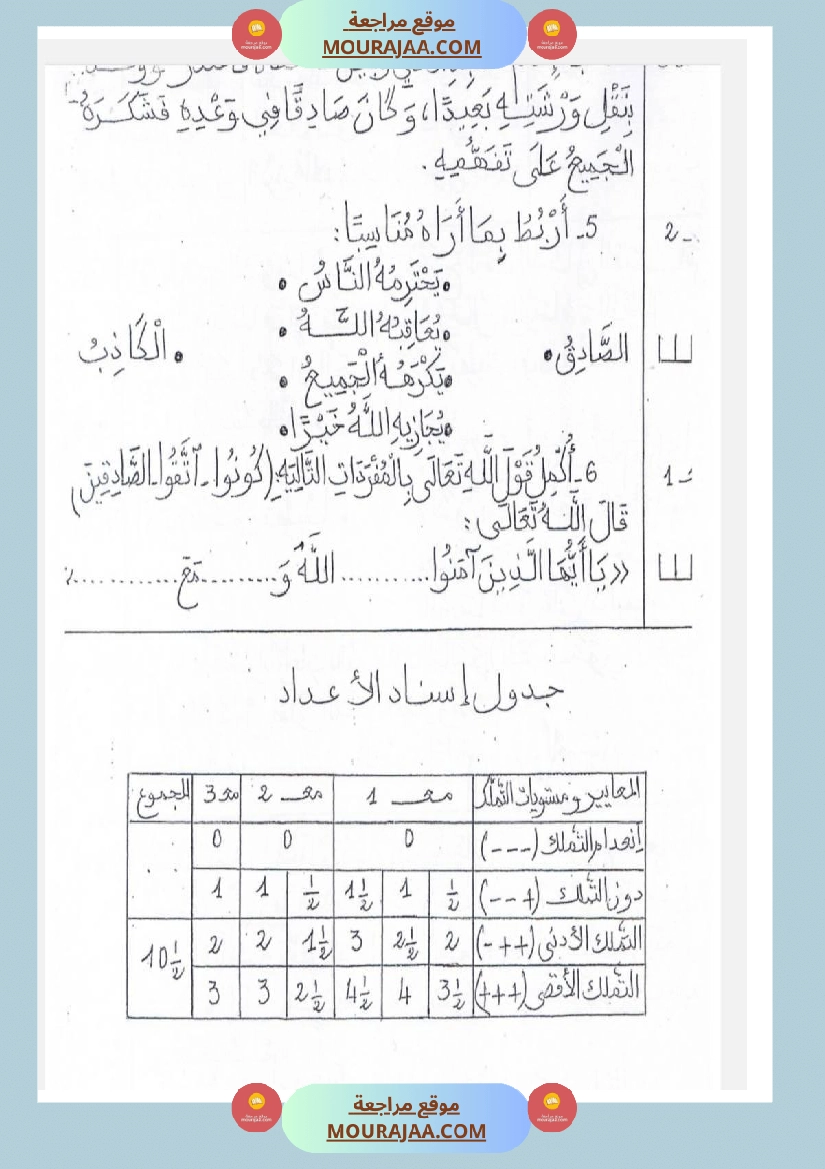 موقع مراجعة
MOURAJAA.COM
بِنَقْلِ وَرْشَتِهِ بَعِيدًا، وَكَانَ صَادِقًا فِي وَعْدِهِ فَشَكَرَهُ
الْجَمِيعُ عَلَى تَفَهُّمِهِ.
5- أَرْبُطُ بِمَا أَرَاهُ مُنَاسِبًا:
2 -
•يَحْتَرِمُهُ النَّاسُ •
•يُعَاقِبُهُ اللَّـهُ •
الصَّادِقُ•
•الْكَاذِبُ
•يَكْرَهُهُ الْجَمِيعُ •
•يُجَازِيهِ اللَّهُ خَيْرًا•
6- أُكْمِلُ قَوْلَ اللَّهِ تَعَالَى بِالْمُفْرَدَاتِ التَّالِيَةِ:(كُونُوا - اتَّقُوا - الصَّادِقِينَ)
1 -
قَالَ اللَّـهُ تَعَالَى:
«يَا أَيُّهَا الَّذِينَ آمَنُوا........... اللَّهَ وَ..........مَعَ ............
جدول إسناد الأعداد
المعايير ومستويات التملك | مع 1 | مع 2 | مع 3 | المجموع
إنعدام التملك (---) | 0 | 0 | 0
دون التملك (+--) | 1/2 | 1 | 1 1/2 | 1/2 | 1 | 1
التملك الأدنى (++-) | 2 | 2 1/2 | 3 | 1 1/2 | 2 | 2 | 10 1/2
التملك الأقصى (+++) | 3 1/2 | 4 | 4 1/2 | 2 1/2 | 3 | 3
موقع مراجعة
MOURAJAA.COM